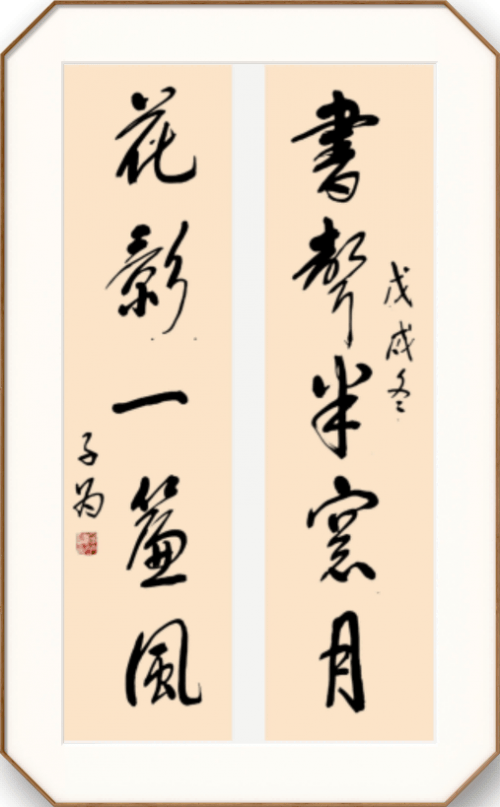 書聲半窓月
戊戌冬
花影一簾風
子為